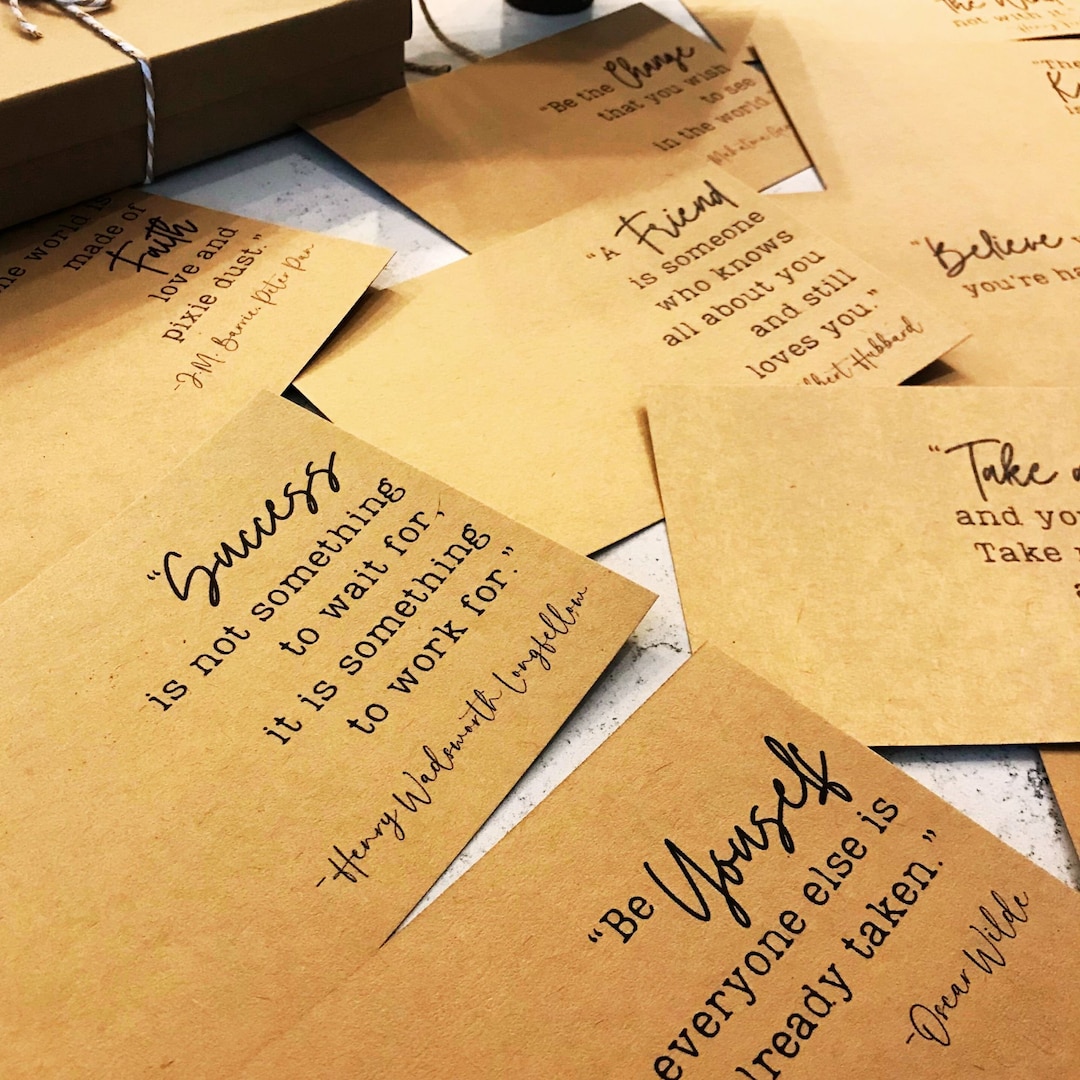 the Wind
not with it
"Be the Change
that you wish
to see
in the world
"The
"A Friend
is someone
who knows
all about you
and still
loves you."
lbert Hubbard
"Believe
you're ha
he world is
made of
Faith
love and
pixie dust."
-J.M. Barrie, Peter Pan
"Take a
and yo
Take
"Success
is not something
to wait for,
it is something
to work for."
-Henry Wadsworth Longfellow
"Be Yourself
everyone else is
lready taken."
-Oscar Wilde